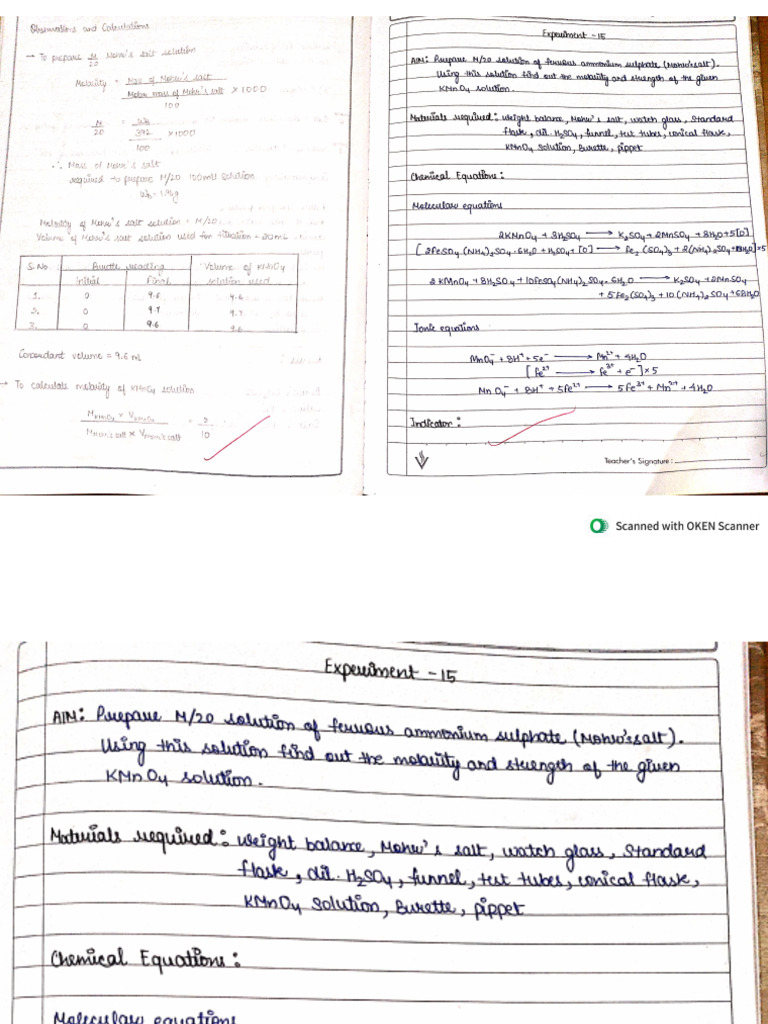 Observations and Calculations
→ To prepare M/20 Mohr's salt solution
Molarity = Mass of Mohr's salt
Molar mass of Mohr's salt × 1000
100
M = Wb
20 392 × 1000
100
∴ Mass of Mohr's salt
required to prepare M/20 100ml solution
Molarity of Mohr's salt solution = M/20
Volume of Mohr's salt solution used for titration = 20mL
S.No Burette reading Volume of KMnO4
initial Final solution used
1. 0 9.6 9.6
2. 0 9.7 9.7
3. 0 9.6 9.6
Concordant volume = 9.6 mL
→ To calculate molarity of KMnO4 solution
MKMnO4 × VKMnO4 = 2
MMohr's salt × VMohr's salt 10
Experiment -15
AIM: Prepare M/20 solution of ferrous ammonium sulphate (Mohr's salt).
Using this solution find out the molarity and strength of the given
KMnO4 solution.
Materials required: Weight balance, Mohr's salt, watch glass, Standard
flask, dil. H2SO4, funnel, test tubes, conical flask,
KMnO4 solution, Burette, pippet
Chemical Equations:
Molecular equations
2KMnO4 + 3H2SO4 → K2SO4 + 2MnSO4 + 3H2O + 5[O]
[2FeSO4(NH4)2SO4·6H2O + H2SO4 + [O] → Fe2(SO4)3 + 2(NH4)2SO4 + 13H2O] × 5
2KMnO4 + 8H2SO4 + 10FeSO4(NH4)2SO4·6H2O → K2SO4 + 2MnSO4
+ 5Fe2(SO4)3 + 10(NH4)2SO4 + 68H2O
Ionic equations
MnO4⁻ + 8H⁺ + 5e⁻ → Mn²⁺ + 4H2O
[Fe²⁺ → Fe³⁺ + e⁻] × 5
MnO4⁻ + 8H⁺ + 5Fe²⁺ → 5Fe³⁺ + Mn²⁺ + 4H2O
Indicator:
Teacher's Signature:
Scanned with OKEN Scanner
Experiment -15
AIM: Prepare M/20 solution of ferrous ammonium sulphate (Mohr's salt).
Using this solution find out the molarity and strength of the given
KMnO4 solution.
Materials required: Weight balance, Mohr's salt, watch glass, Standard
flask, dil. H2SO4, funnel, test tubes, conical flask,
KMnO4 Solution, Burette, pippet
Chemical Equations:
Molecular equations